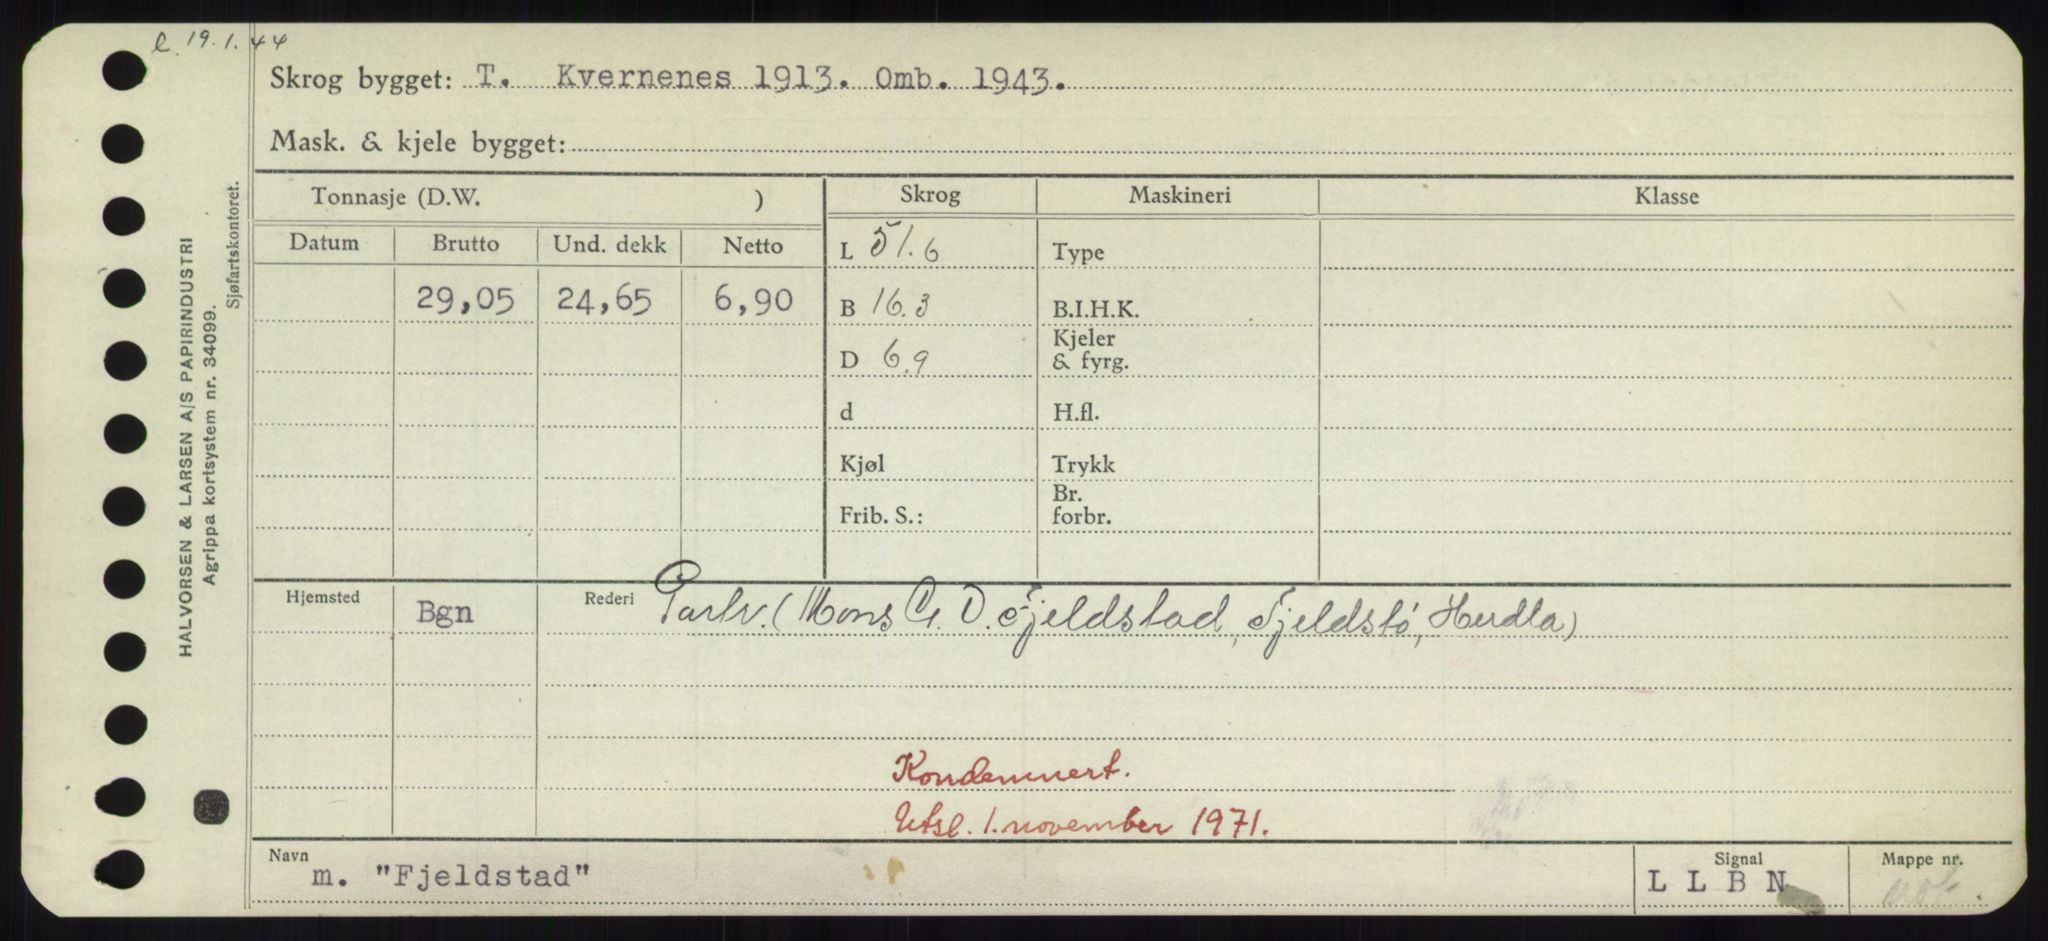 e. 19.1.44
Skrog bygget: T. Kvernenes 1913. Omb. 1943.
Mask. & kjele bygget:
Tonnasje (D.W. ) Skrog Maskineri Klasse
Datum Brutto Und. dekk Netto L 51.6 Type
29,05 24,65 6,90 B 16.3 B.I.H.K.
D 6.9 Kjeler & fyrg.
d H.fl.
Kjøl Trykk
Frib. S.: Br. forbr.
Hjemsted Bgn Rederi Partr. (Mons G. D. Fjeldstad, Fjeldstø, Herdla)
Kondemnert.
Utsl. 1. november 1971.
Navn m. "Fjeldstad" Signal L L B N Mappe nr.
HALVORSEN & LARSEN A/S PAPIRINDUSTRI
Agrippa kortsystem nr. 34099.
Sjøfartskontoret.